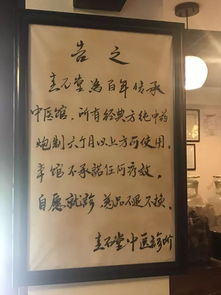 告之
玄石堂为百年传承
中医馆，所有经典方绝中药
炮制六个月以上方可使用，
幸馆不承诺任何疗效，
自愿就诊，药品不退不换。
玄石堂中医诊所